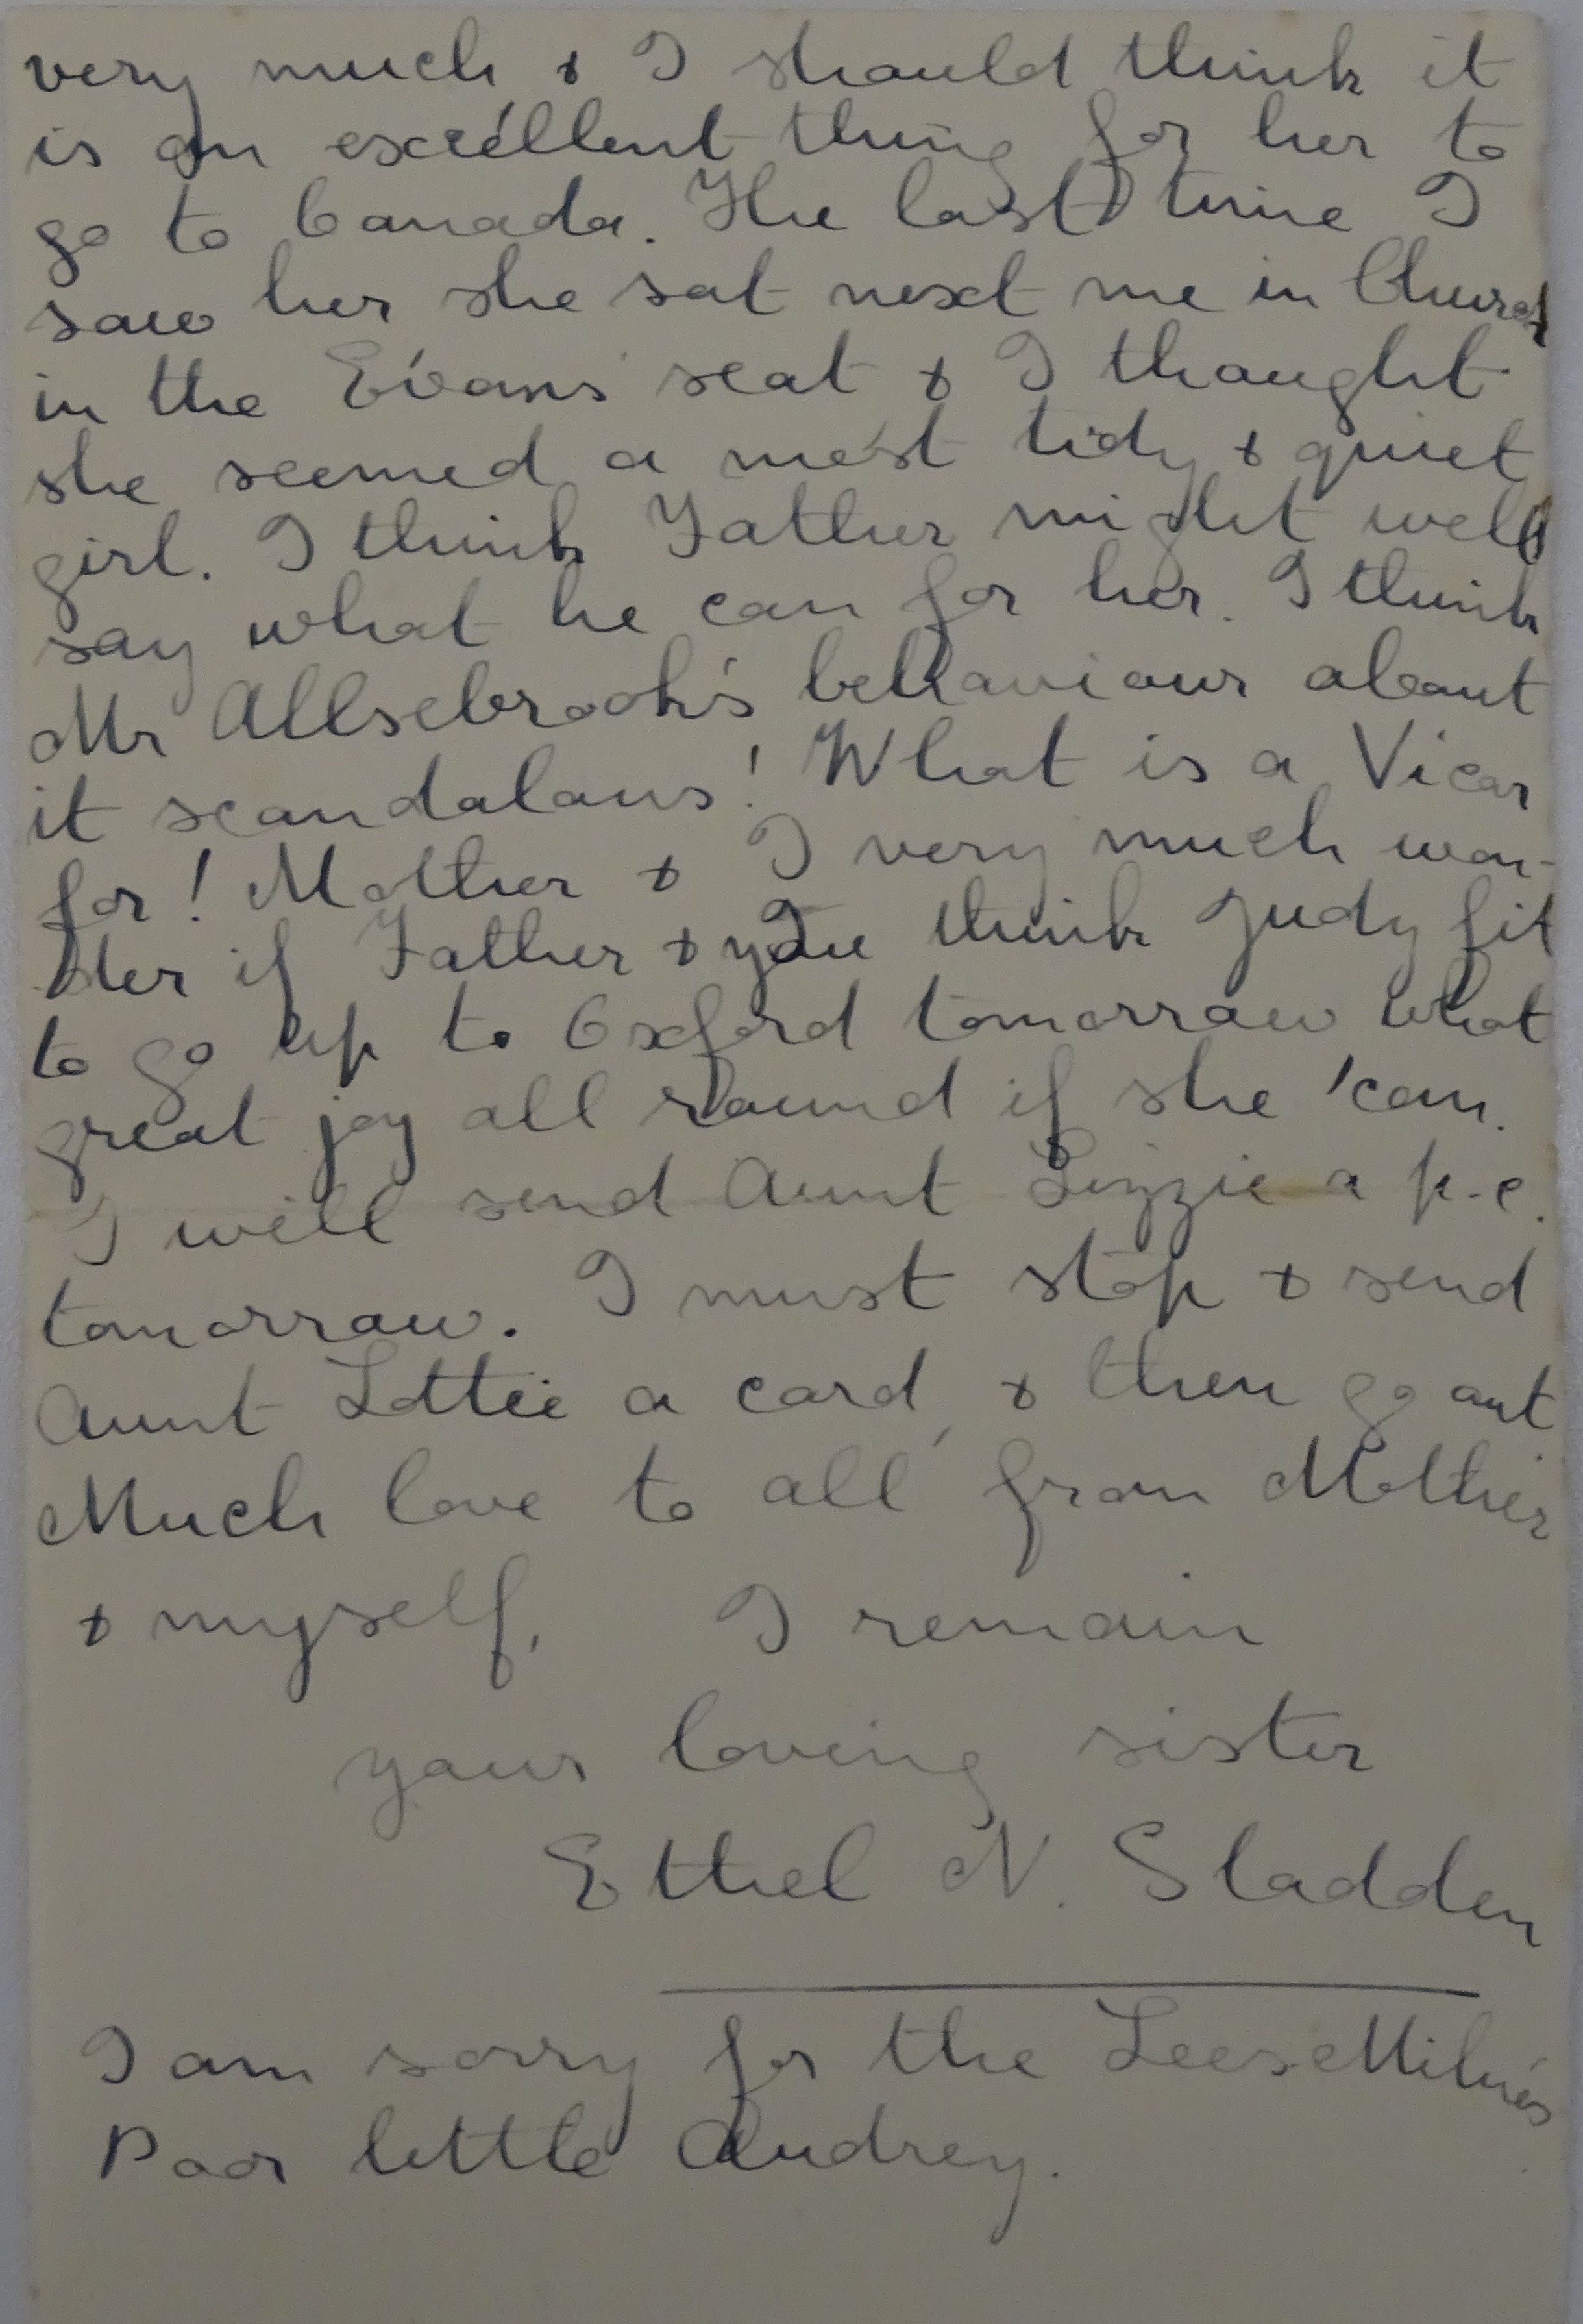 very much & I should think it
is an excellent thing for her to
go to Canada. The last time I
saw her she sat next me in Church
in the Evans' seat & I thought
she seemed a most tidy & quiet
girl. I think Father might well
say what he can for her. I think
Mr Allsebrook's behaviour about
it scandalous! What is a Vicar
for! Mother & I very much won-
der if Father & you think Judy fit
to go up to Oxford tomorrow what
great joy all round if she can.
I will send Aunt Lizzie a p.c.
tomorrow. I must stop & send
Aunt Lottie a card, & then go out
Much love to all from Mother
& myself, I remain
your loving sister
Ethel N. Sladden
I am sorry for the Lees Milnes
Poor little Audrey.